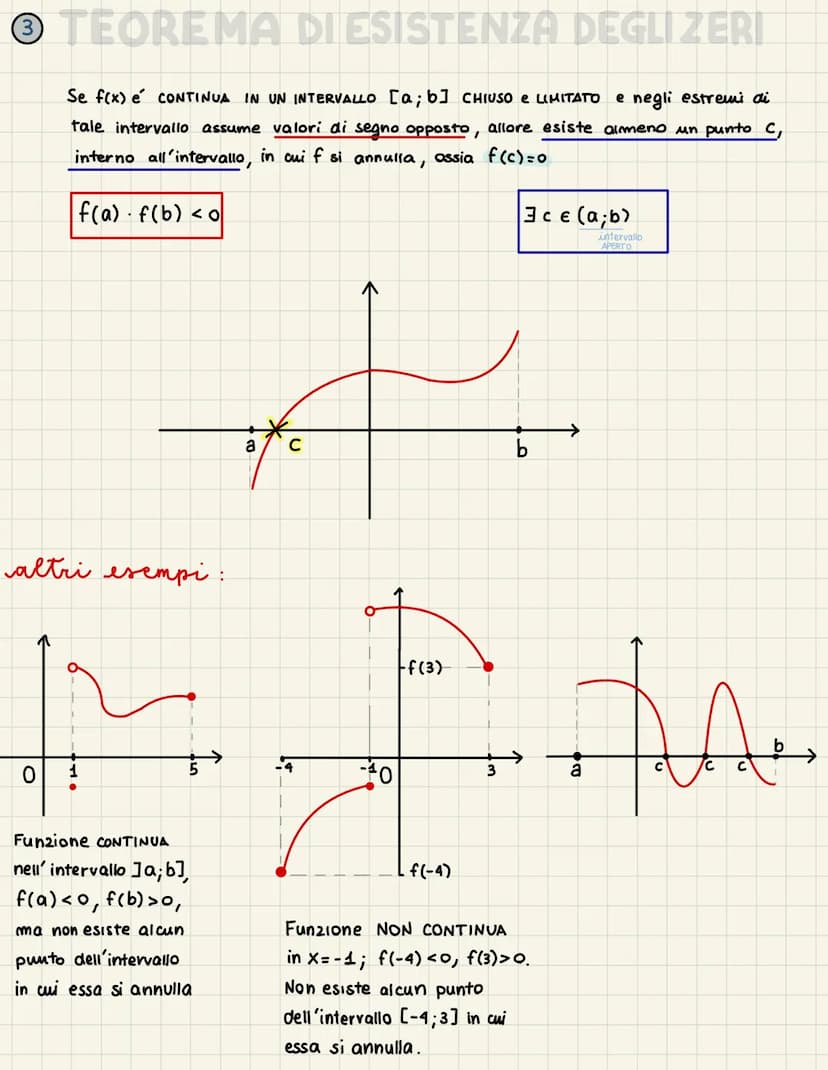 3 TEOREMA DI ESISTENZA DEGLI ZERI
Se f(x) é CONTINUA IN UN INTERVALLO [a;b] CHIUSO e LIMITATO e negli estremi di
tale intervallo assume valori di segno opposto, allore esiste almeno un punto C,
interno all'intervallo, in cui f si annulla, ossia f(c)=0
f(a) · f(b) < 0
∃ c ∈ (a;b)
intervallo
APERTO
a c b
altri esempi:
f(3)
0 1 5
-4 -1 0 3
a c c c b
f(-4)
Funzione CONTINUA
nell'intervallo ]a;b],
f(a)<0, f(b)>0,
ma non esiste alcun
punto dell'intervallo
in cui essa si annulla
Funzione NON CONTINUA
in x=-1; f(-4)<0, f(3)>0.
Non esiste alcun punto
dell'intervallo [-4;3] in cui
essa si annulla.